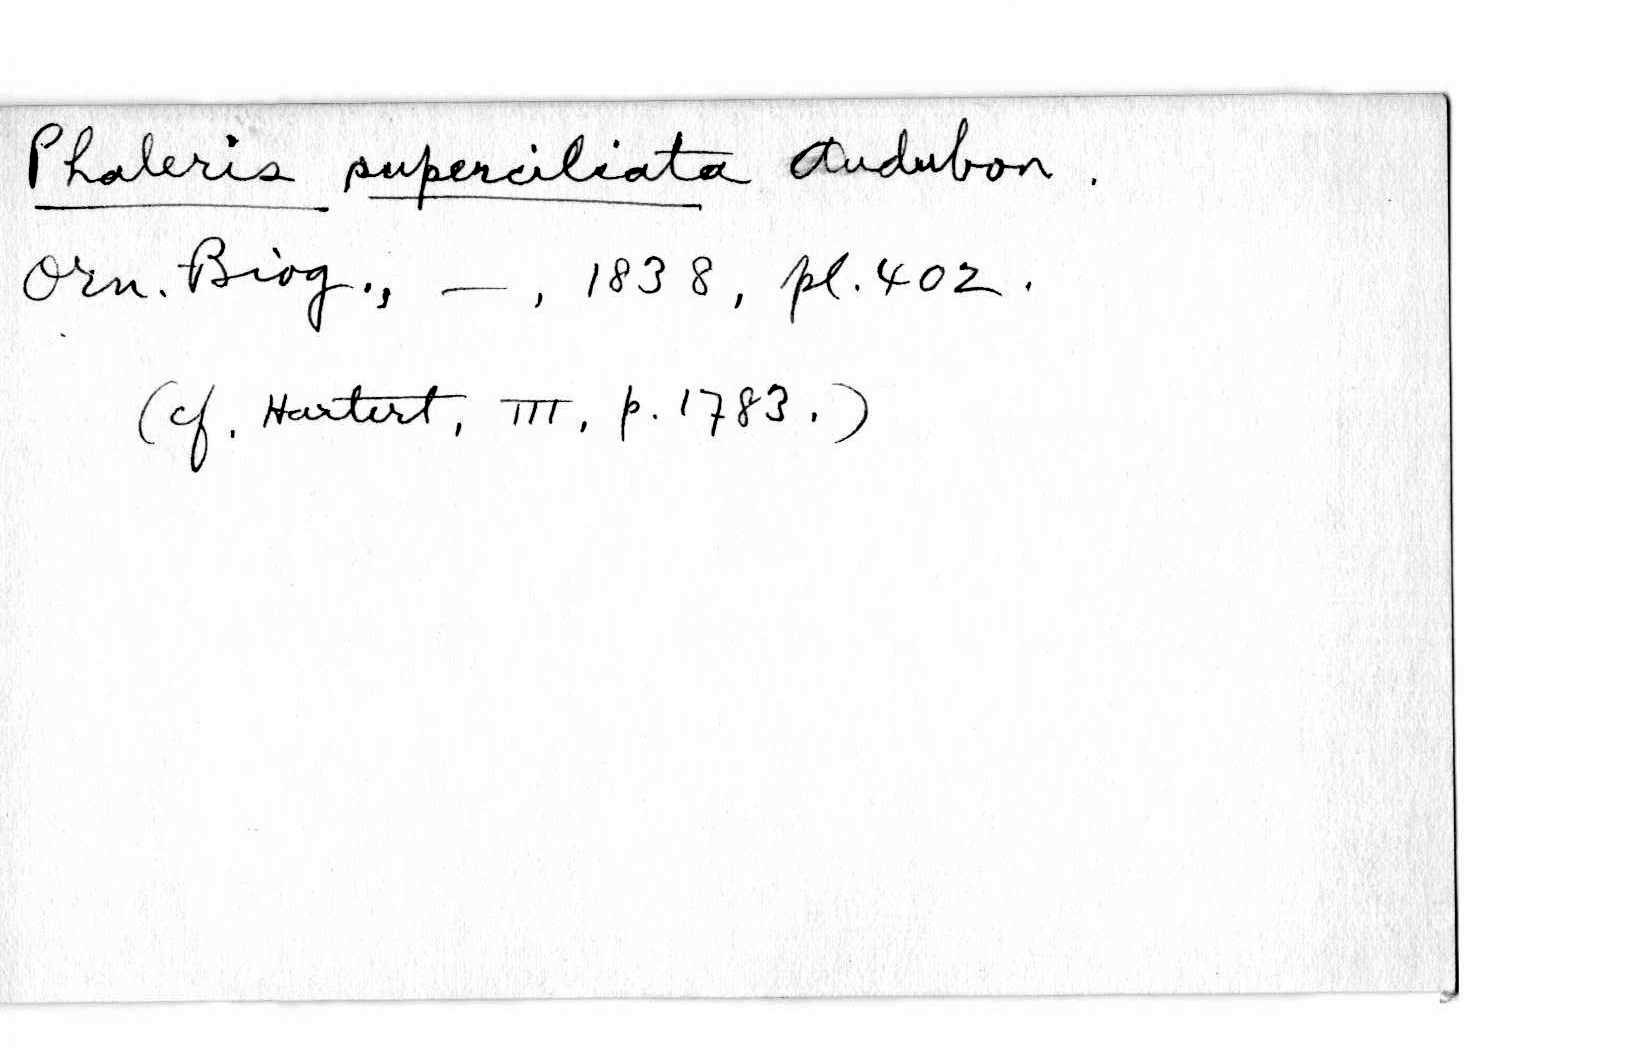 Phaleris superciliata Audubon.
Orn. Biog., —, 1838, pl. 402.
(cf. Hartert, III, p. 1783.)